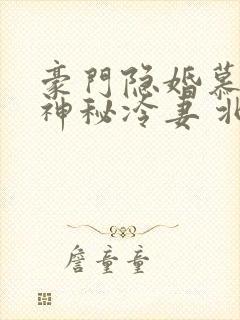 豪門隐婚慕
神秘冷妻 北
詹童童